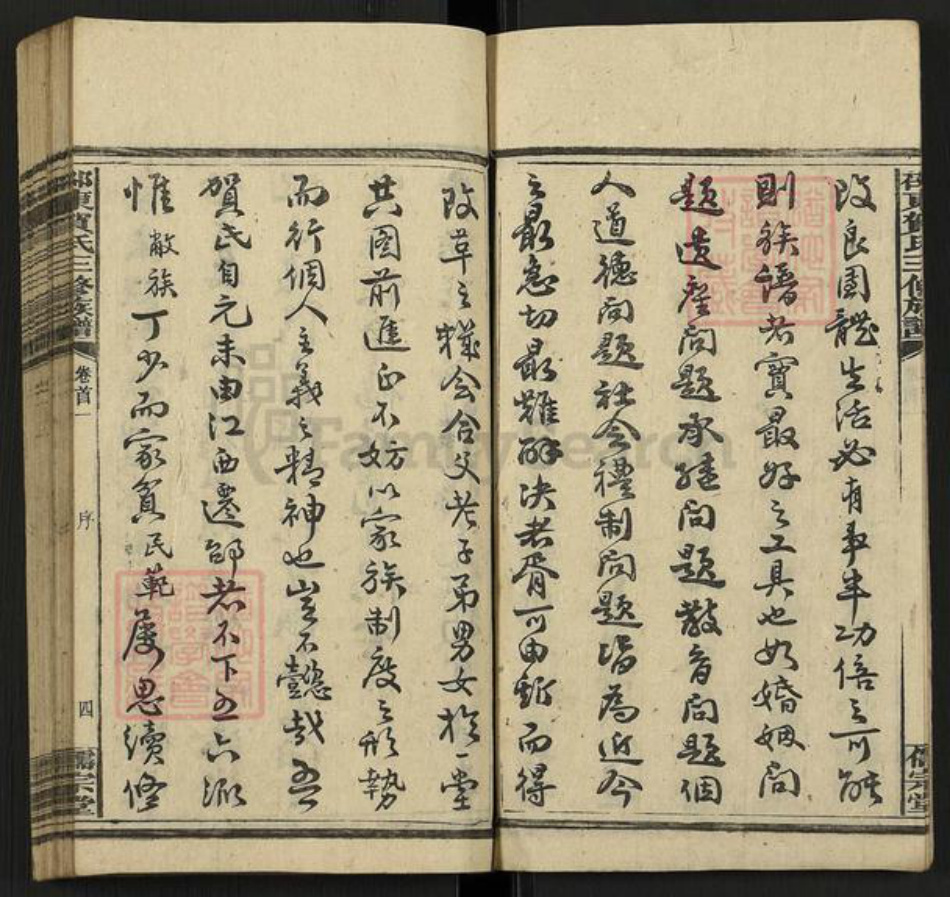 改良團體生活必有事半功倍之可能
則族譜者實最好之工具也如婚姻問
題遺產問題承繼問題教育問題個
人道德問題社會禮制問題皆為近今
之最急切最難解決者胥可由斯而得
改革之機會合父老子弟男女於一堂
共圖前進正不妨以家族制度之形勢
而行個人主義之精神也豈不懿哉吾
賀氏自元末由江西遷邵者不下五六派
惟敝族丁少而家貧民範屢思續修
邵東賀氏三修族譜
卷首一
序
四
儒宗堂